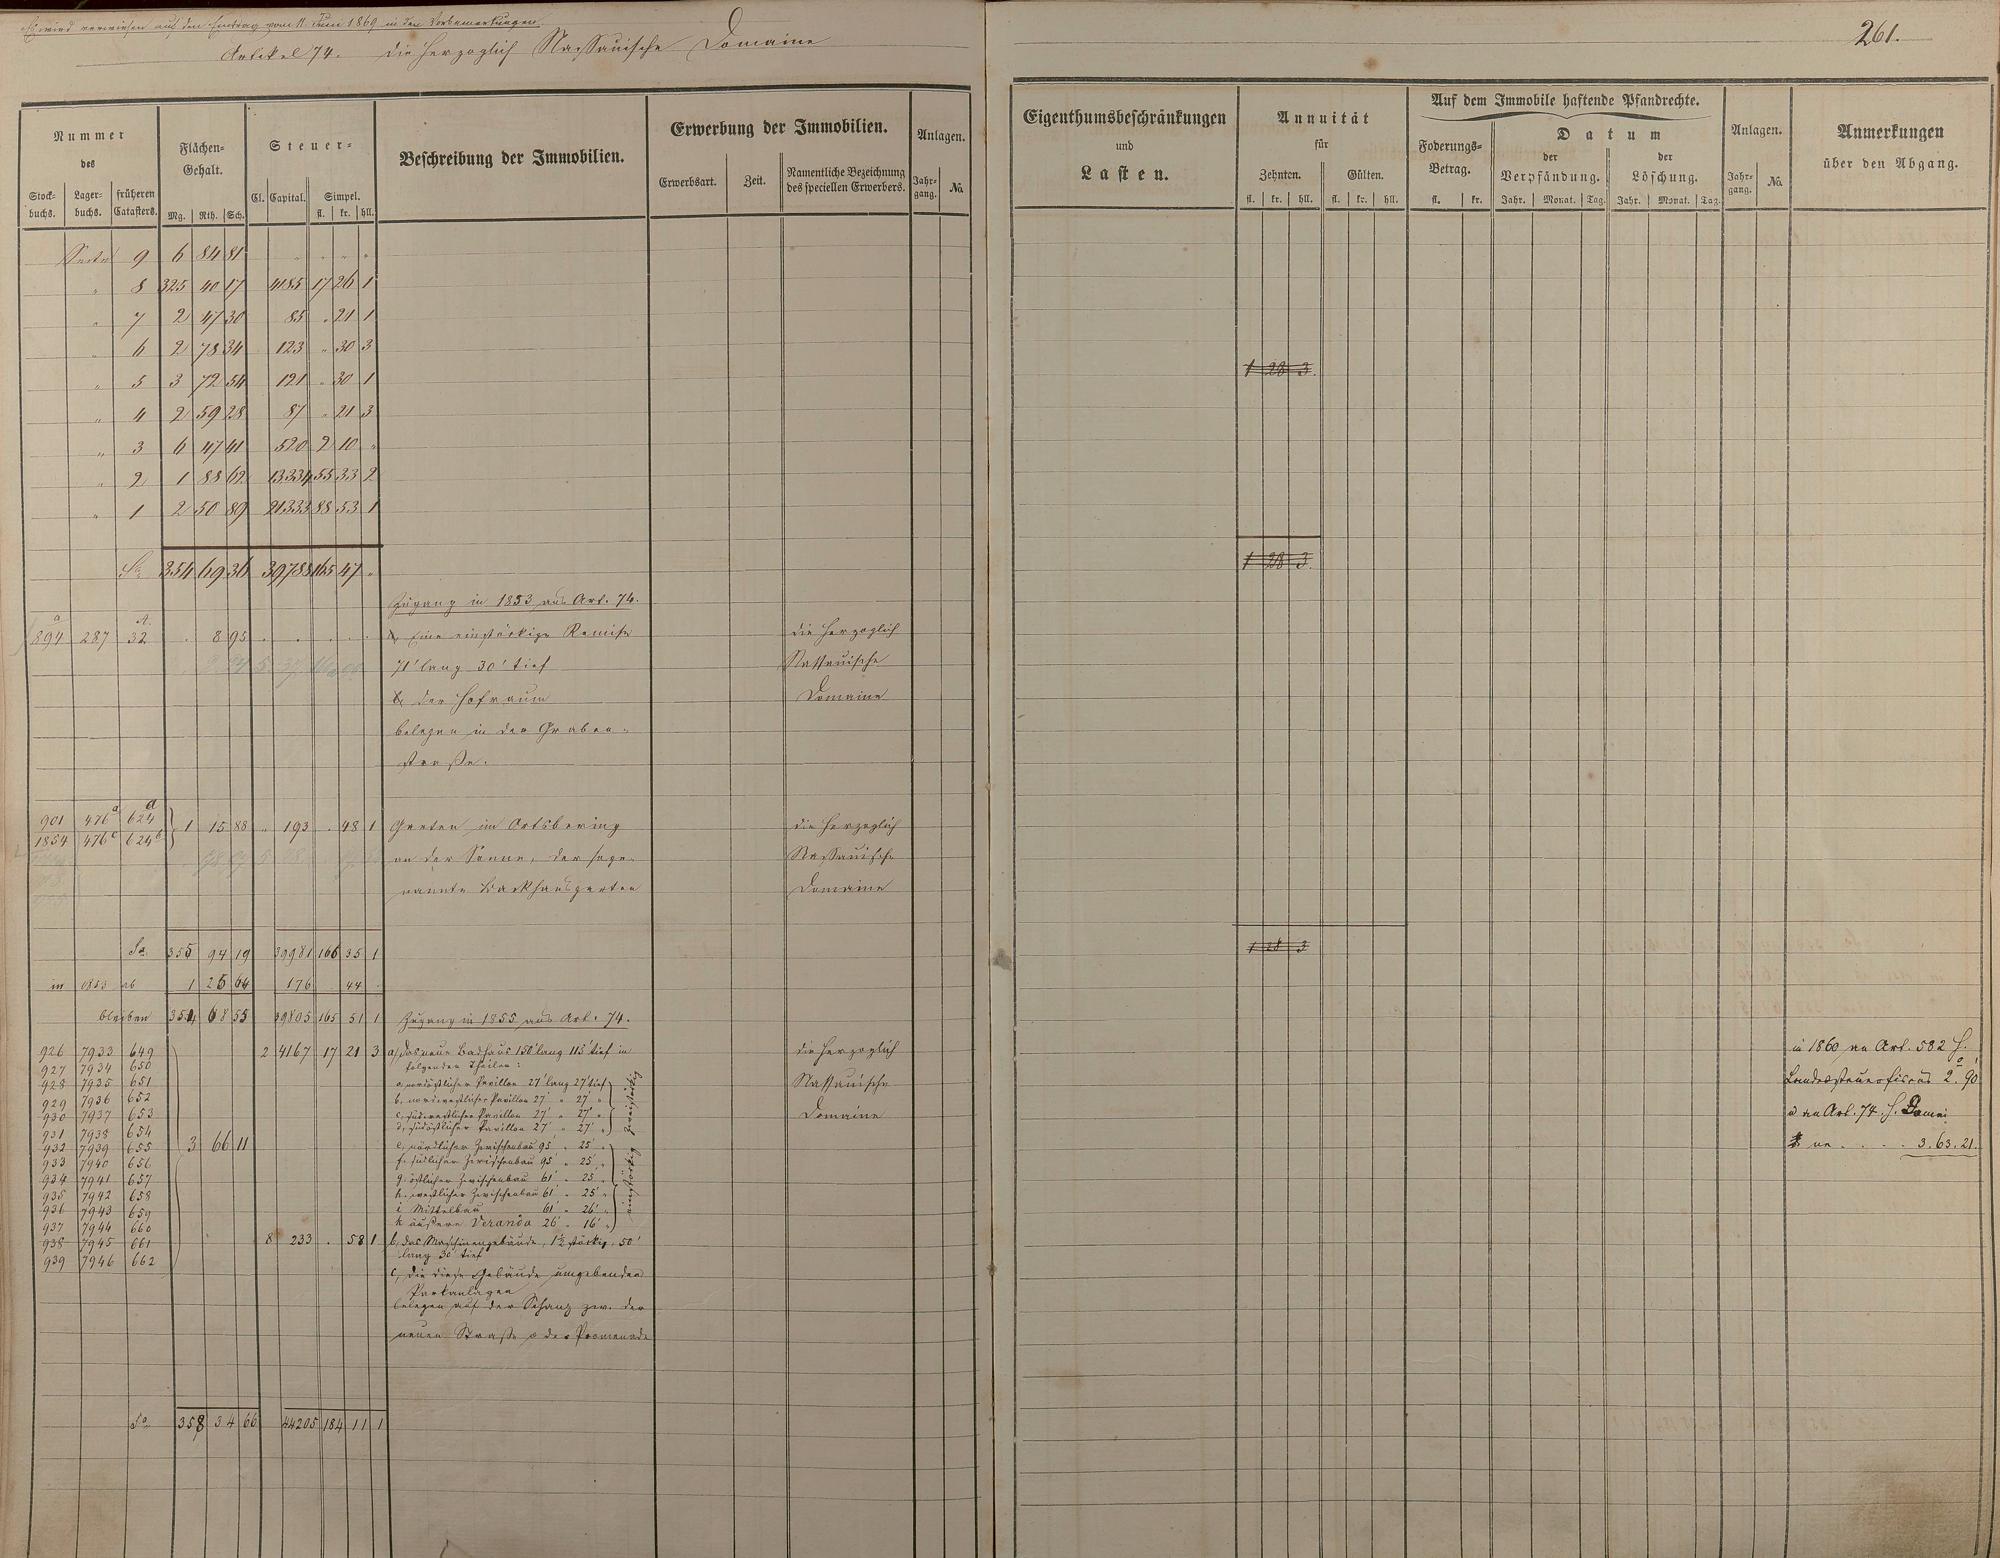 Es wird verwiesen auf den Eintrag vom 11. Juni 1869 in den Vorbemerkungen.
Artikel 74. die Herzoglich Nassauische Domaine
261.
Nummer des
Stockbuchs. Lagerbuchs. früheren Catasters.
Flächen-Gehalt.
Mg. Rth. Sch.
Steuer-
Cl. Capital. Simpel.
fl. kr. hll.
Beschreibung der Immobilien.
Erwerbung der Immobilien.
Erwerbsart. Zeit. Namentliche Bezeichnung des speciellen Erwerbers.
Anlagen.
Jahrgang. No.
Eigenthumsbeschränkungen
und
Lasten.
Annuität
für
Zehnten. Gülten.
fl. kr. hll. fl. kr. hll.
Auf dem Immobile haftende Pfandrechte.
Foderungs-Betrag.
fl. kr.
Datum
der Verpfändung. der Löschung.
Jahr. Monat. Tag. Jahr. Monat. Tag.
Anlagen.
Jahrgang. No.
Anmerkungen
über den Abgang.
Seite 9 6 84 81 " " " "
" 8 325 40 17 4185 17 26 1
" 7 2 47 30 85 " 21 1
" 6 2 78 34 123 " 30 3
1 28 3.
" 5 3 72 54 121 " 30 1
" 4 2 59 28 87 " 21 3
" 3 6 47 41 520 2 10 "
" 2 1 88 62 13334 55 33 2
" 1 2 50 89 21333 88 53 1
Sa 354 69 36 39788 165 47 "
1 28 3.
Zugang in 1853 aus Art. 74.
894a 287 32A. . 8 95 . . . . . a, Eine einstöckige Remise die Herzoglich
71' lang 30' tief Nassauische
b, der Hofraum Domaine
belegen in der Graben-
straße.
901 476a 624a
1854 476c 624b
1 15 88 " 193 . 48 1 Garten im Ortsbering die Herzoglich
an der Sonne, der soge- Nassauische
nannte Backhausgarten Domaine
Sa. 355 94 19 39981 166 35 1
1 28 3
in 1853 ab 1 25 64 176 . 44 .
bleiben 354 68 55 39805 165 51 1 Zugang in 1855 aus Art. 74.
926 7933 649 2 4167 17 21 3 a, das neue Badhaus 150' lang 115' tief in die Herzoglich
927 7934 650 folgenden Theilen:
928 7935 651 a. nordöstlicher Pavillon 27' lang 27' tief Nassauische
929 7936 652 b. nordwestlicher Pavillon 27' " 27' "
930 7937 653 c. südwestlicher Pavillon 27' " 27' " Domaine
931 7938 654 d. südöstlicher Pavillon 27' " 27' "
zweistöckig
932 7939 655 3 66 11 e. nördlicher Zwischenbau 95' " 25' "
933 7940 656 f. südlicher Zwischenbau 95' " 25' "
934 7941 657 g. östlicher Zwischenbau 61' " 25' "
935 7942 658 h. westlicher Zwischenbau 61' " 25' "
936 7943 659 i Mittelbau 61' " 26' "
937 7944 660 k äußere Veranda 26' " 16' "
einstöckig
938 7945 661 8 233 . 58 1 b, das Maschinengebäude, 1½ stöckig, 50'
939 7946 662 lang 30' tief
c, die diese Gebäude umgebenden
Parkanlagen
belegen auf der Schanz zw. der
neuen Straße u der Promenade
in 1860 an Art. 582 H.
Landessteuerfiscus 2° 90'
u an Art. 74. H. Domai
ne . . . . 3. 63. 21.
Sa 358 34 66 44205 184 11 1